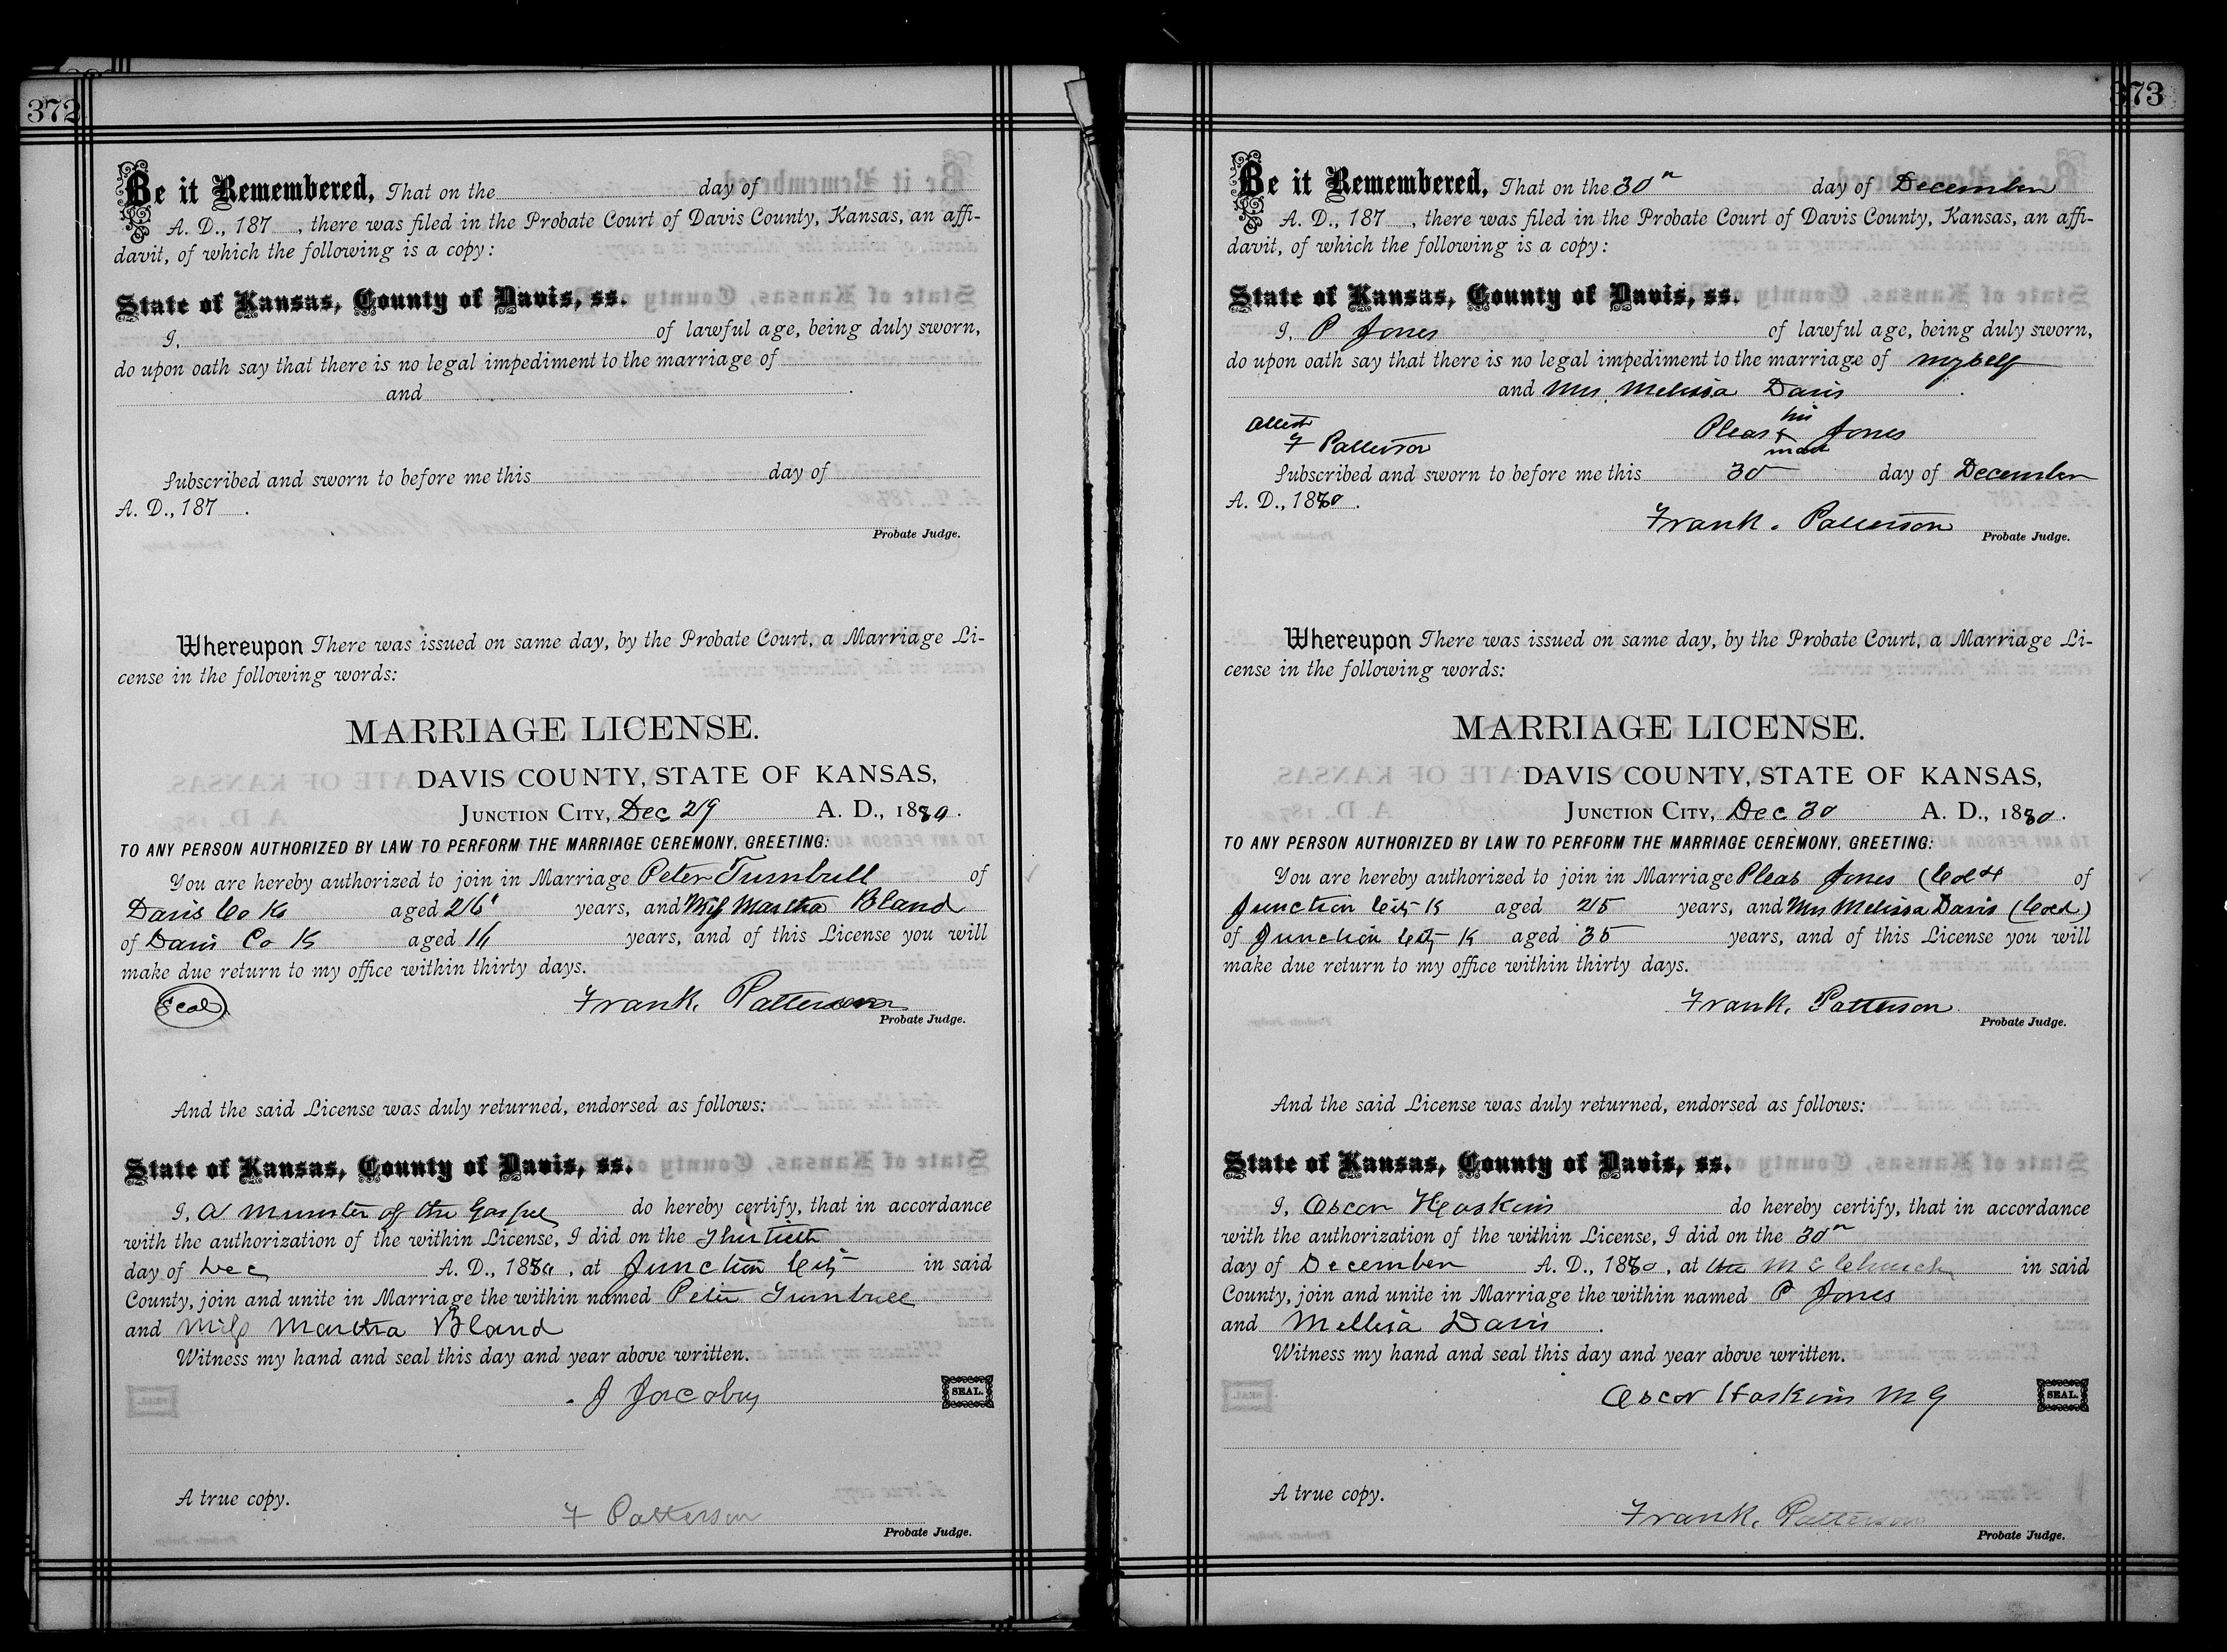 372
Be it Remembered, That on the day of
A. D., 187 , there was filed in the Probate Court of Davis County, Kansas, an affi-
davit, of which the following is a copy:
State of Kansas, County of Davis, ss.
I, of lawful age, being duly sworn,
do upon oath say that there is no legal impediment to the marriage of
and .
Subscribed and sworn to before me this day of
A. D., 187 .
Probate Judge.
Whereupon There was issued on same day, by the Probate Court, a Marriage Li-
cense in the following words:
MARRIAGE LICENSE.
DAVIS COUNTY, STATE OF KANSAS,
JUNCTION CITY, Dec 29 A. D., 1880.
TO ANY PERSON AUTHORIZED BY LAW TO PERFORM THE MARRIAGE CEREMONY, GREETING:
You are hereby authorized to join in Marriage Peter Turnbull of
Davis Co Ks aged 26 years, and Miss Martha Bland
of Davis Co K aged 16 years, and of this License you will
make due return to my office within thirty days.
Seal Frank. Patterson
Probate Judge.
And the said License was duly returned, endorsed as follows:
State of Kansas, County of Davis, ss.
I, A Minister of the Gospel do hereby certify, that in accordance
with the authorization of the within License, I did on the Thirtieth
day of Dec A. D., 1880, at Junction City in said
County, join and unite in Marriage the within named Peter Turnbull
and Miss Martha Bland
Witness my hand and seal this day and year above written.
J Jacobus SEAL.
A true copy.
F Patterson
Probate Judge.
373
Be it Remembered, That on the 30th day of December
A. D., 187 , there was filed in the Probate Court of Davis County, Kansas, an affi-
davit, of which the following is a copy:
State of Kansas, County of Davis, ss.
I, P Jones of lawful age, being duly sworn,
do upon oath say that there is no legal impediment to the marriage of myself
and Mrs. Melissa Davis .
Attest his
F Patterson Pleas + Jones
mark
Subscribed and sworn to before me this 30 day of December
A. D., 1880.
Frank. Patterson
Probate Judge.
Whereupon There was issued on same day, by the Probate Court, a Marriage Li-
cense in the following words:
MARRIAGE LICENSE.
DAVIS COUNTY, STATE OF KANSAS,
JUNCTION CITY, Dec 30 A. D., 1880.
TO ANY PERSON AUTHORIZED BY LAW TO PERFORM THE MARRIAGE CEREMONY, GREETING:
You are hereby authorized to join in Marriage Pleas Jones (Cold of
Junction City K aged 25 years, and Mrs Melissa Davis (Cold)
of Junction City K aged 35 years, and of this License you will
make due return to my office within thirty days.
Frank. Patterson
Probate Judge.
And the said License was duly returned, endorsed as follows:
State of Kansas, County of Davis, ss.
I, Oscar Haskins do hereby certify, that in accordance
with the authorization of the within License, I did on the 30th
day of December A. D., 1880, at the M E Church in said
County, join and unite in Marriage the within named P Jones
and Mellisa Davis .
Witness my hand and seal this day and year above written.
Oscar Haskins M G SEAL.
A true copy.
Frank. Patterson
Probate Judge.